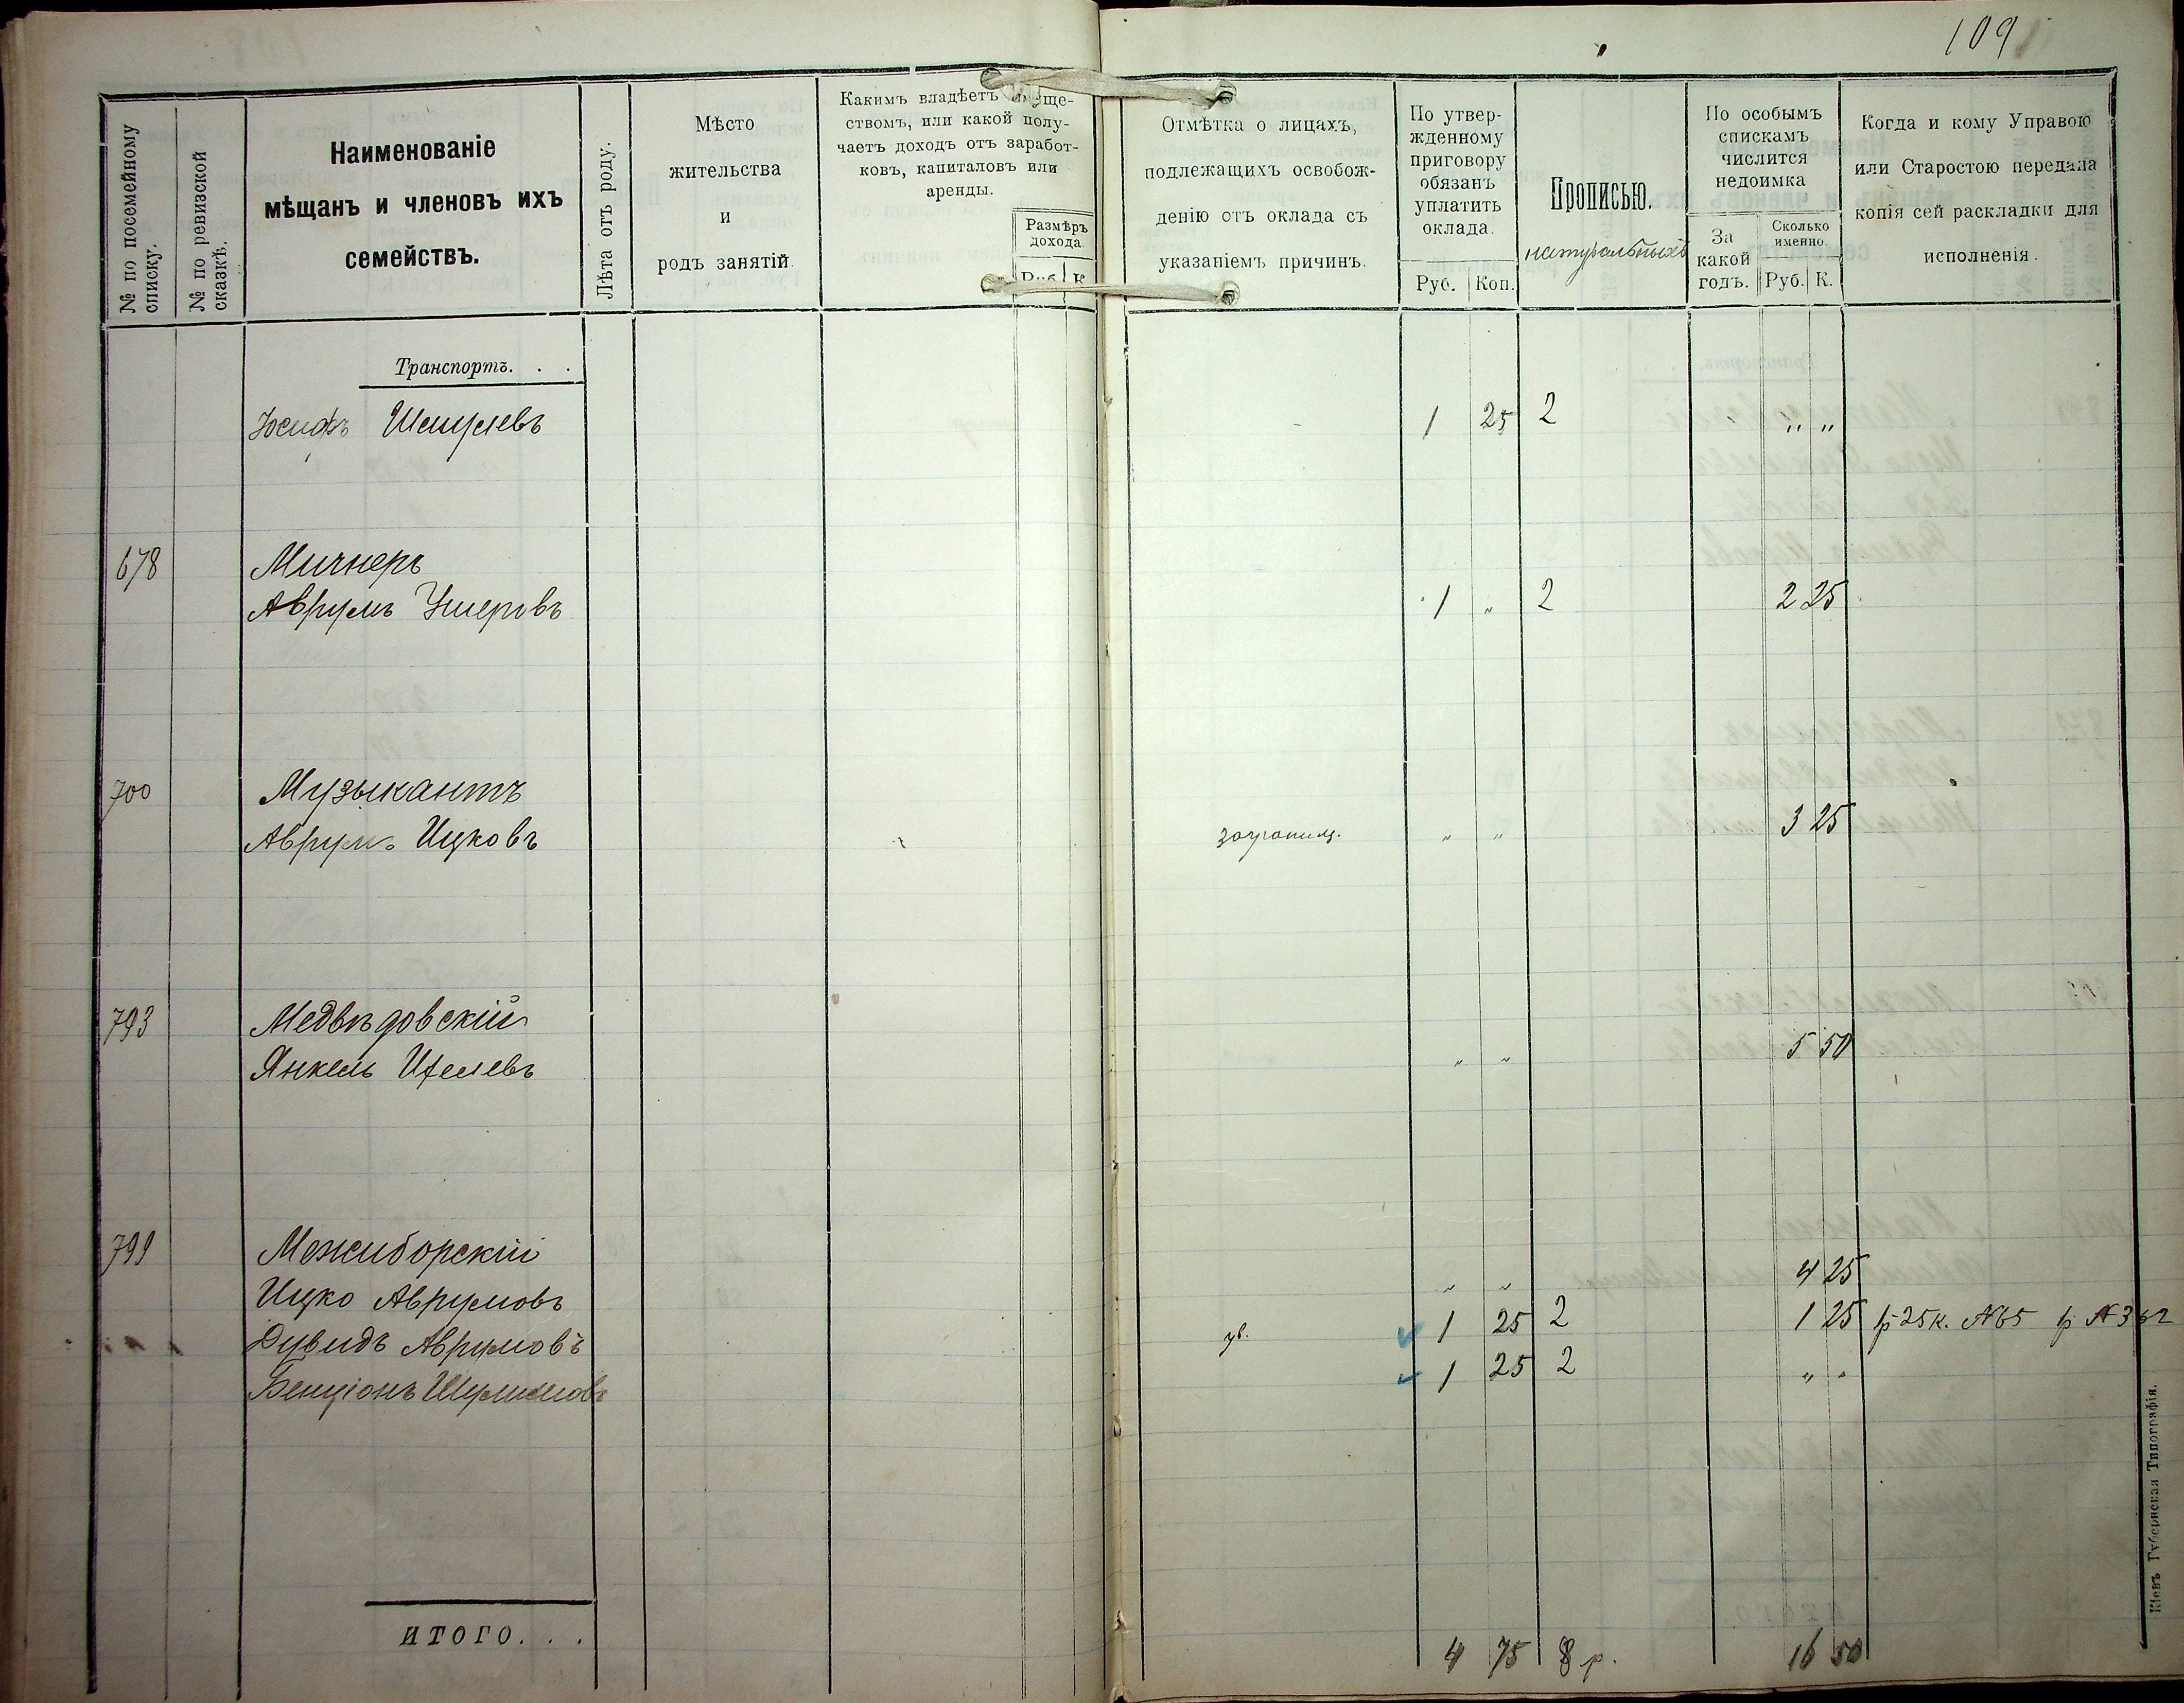 109
№ по посемейному списку.
№ по ревизской скакѣ.
Наименованіе
мѣщанъ и членовъ ихъ
семействъ.
Лѣта отъ роду.
Мѣсто
жительства
и
родъ занятій.
Какимъ владѣетъ имуще-
ствомъ, или какой полу-
чаетъ доходъ отъ заработ-
ковъ, капиталовъ или
аренды.
Размѣръ
дохода.
Руб. К.
Отмѣтка о лицахъ,
подлежащихъ освобож-
денію отъ оклада съ
указаніемъ причинъ.
По утвер-
жденному
приговору
обязанъ
уплатить
оклада.
Руб. Коп.
Прописью.
натуральныхъ
По особымъ
спискамъ
числится
недоимка
За
какой
годъ.
Сколько
именно.
Руб. К.
Когда и кому Управою
или Старостою передана
копія сей раскладки для
исполненія.
Транспортъ. . .
Іосифъ Шмулевъ 1 25 2 " "
678 Мичнеръ
Аврумъ Ушеровъ 1 " 2 2 25
700 Музыкантъ
Аврумъ Ицковъ заграниц. " " 3 25
793 Медвѣдовскій
Янкель Ицелевъ " " 5 50
799 Межиборскій
Ицко Аврумовъ " " 4 25
Дувидъ Аврумовъ ув. 1 25 2 1 25 1р 25к. №65
Бенціонъ Шулимовъ 1 25 2 " "
ИТОГО. . . 4 75 8 р. 16 50
Кіевъ Губернская Типографія.